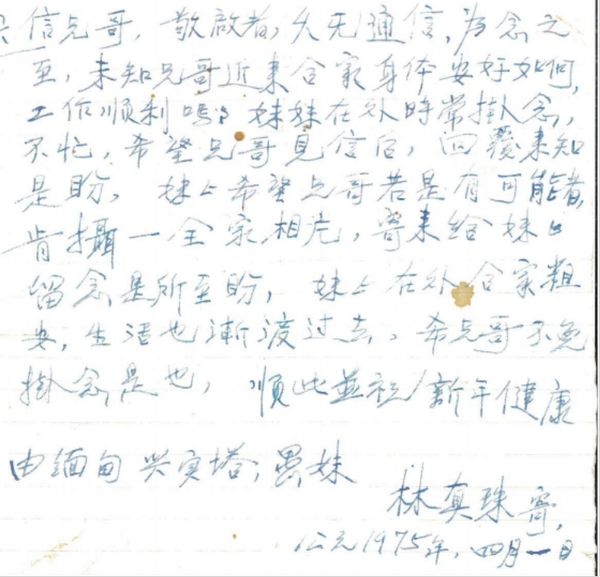 信兄哥,敬啟者,久无通信,为念之
至,未知兄哥近来合家身体安好如何,
工作順利嗎?妹妹在外時常掛念,
不忙,希望兄哥見信后,回覆来知
是盼,妹々希望兄哥若是有可能者,
肯攝一全家相片,寄来给妹々
留念是所至盼,妹々在外合家粗
安,生活也漸渡过去,希兄哥不免
掛念是也,順此並祝新年健康
由缅甸兴实塔,愚妹
林真珠寄,
公元1975年,四月一日